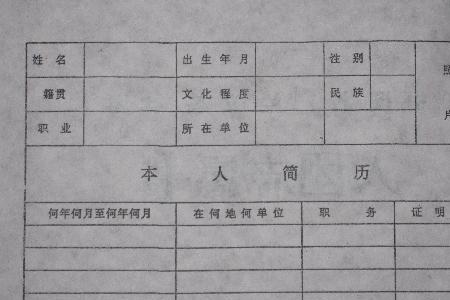 姓 名 出 生 年 月 性 别 照
籍贯 文 化 程 度 民 族
职 业 所 在 单 位 片
本 人 简 历
何年何月至何年何月 在 何 地 何 单 位 职 务 证 明